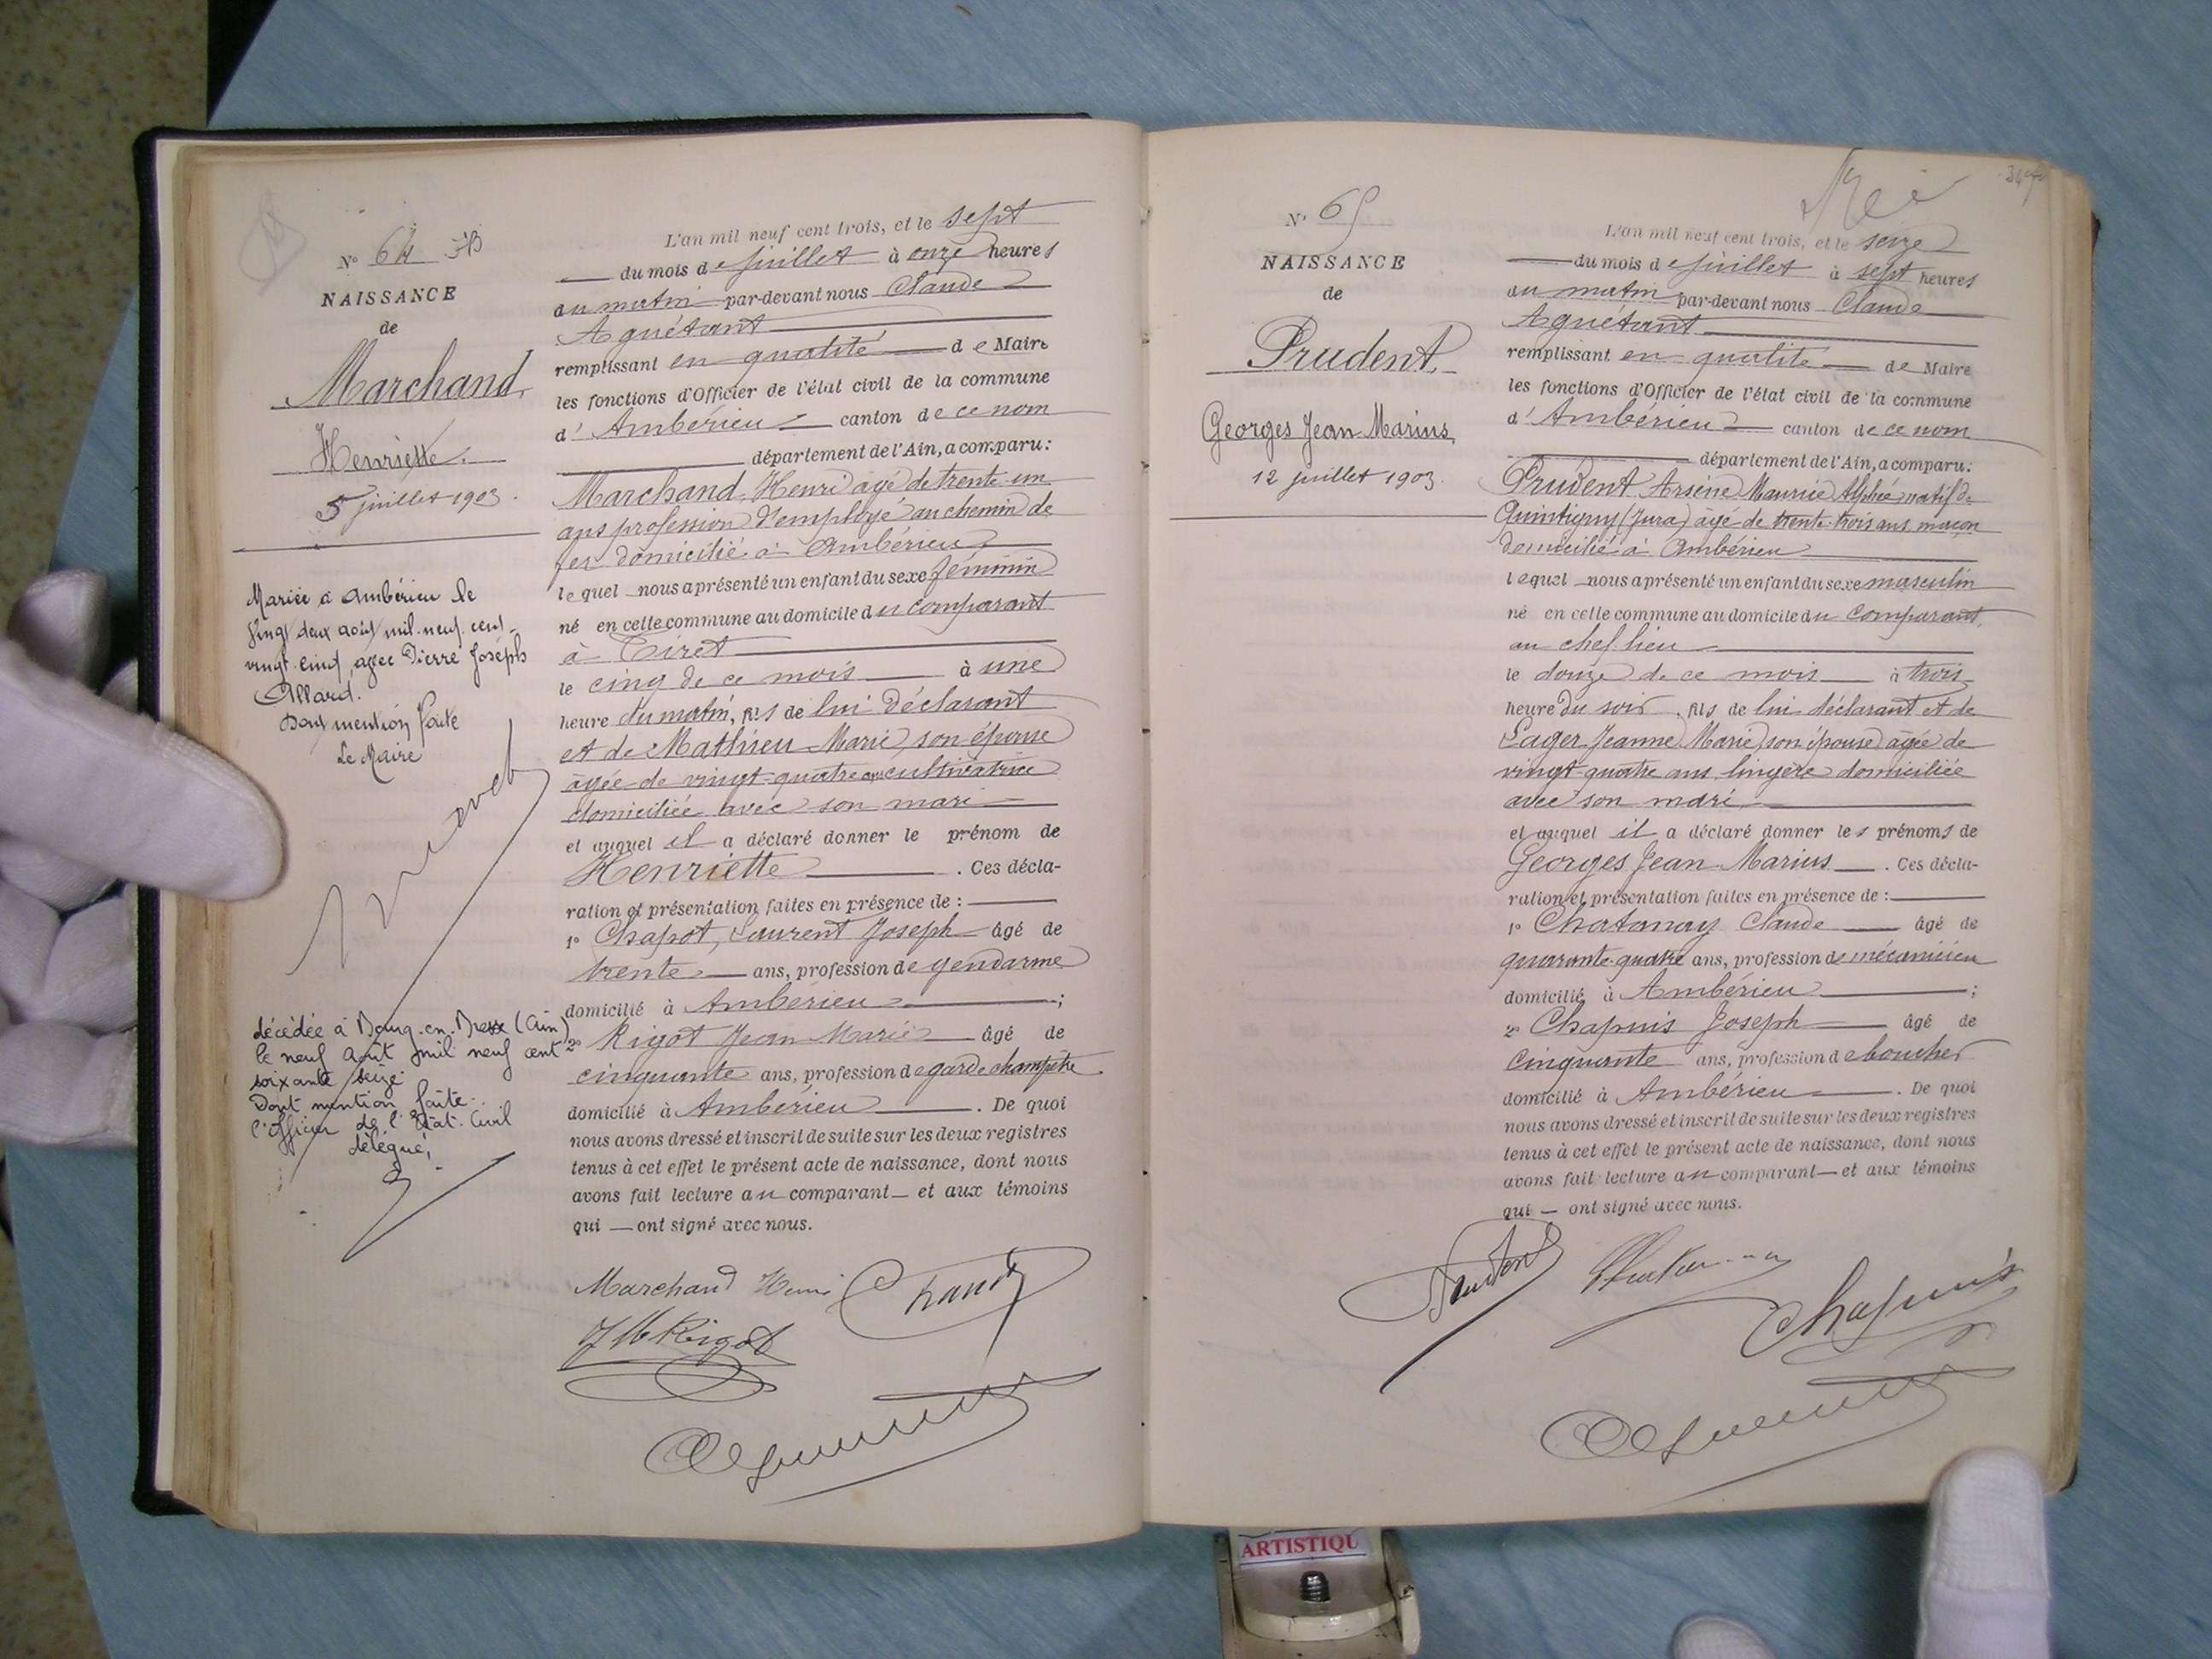 N° 64
NAISSANCE
de
Marchand
Henriette.
5 juillet 1903.
Mariée à Ambérieu le
vingt deux août mil neuf cent
vingt cinq avec Pierre Joseph
Allard.
Dont mention faite
Le Maire
décédée à Bourg-en-Bresse (Ain)
le neuf Août mil neuf cent
soixante seize
Dont mention faite.
l'Officier de l'Etat-Civil
délégué,
L'an mil neuf cent trois, et le sept
du mois de juillet à onze heures
du matin par-devant nous Claude
Aguétant
remplissant en qualité de Maire
les fonctions d'Officier de l'état civil de la commune
d'Ambérieu canton de ce nom
département de l'Ain, a comparu:
Marchand Henri âgé de trente un
ans profession d'employé au chemin de
fer domicilié à Ambérieu
lequel nous a présenté un enfant du sexe féminin
né en cette commune au domicile du comparant
à Tiret
le cinq de ce mois à une
heure du matin, fils de lui déclarant
et de Mathieu Marie, son épouse
âgée de vingt-quatre ans cultivatrice
domiciliée avec son mari
et auquel il a déclaré donner le prénom de
Henriette. Ces décla-
ration et présentation faites en présence de :
1° Chapot, Laurent Joseph âgé de
trente ans, profession de gendarme
domicilié à Ambérieu ;
2° Rigot Jean Marie âgé de
cinquante ans, profession de garde champêtre
domicilié à Ambérieu. De quoi
nous avons dressé et inscrit de suite sur les deux registres
tenus à cet effet le présent acte de naissance, dont nous
avons fait lecture au comparant et aux témoins
qui ont signé avec nous.
Marchand Henri
JM Rigot
N° 65
NAISSANCE
de
Prudent
Georges Jean Marius
12 juillet 1903.
L'an mil neuf cent trois, et le seize
du mois de juillet à sept heures
du matin par-devant nous Claude
Aguétant
remplissant en qualité de Maire
les fonctions d'Officier de l'état civil de la commune
d'Ambérieu canton de ce nom
département de l'Ain, a comparu:
Prudent Arsène Maurice natif de
Quintigny (Jura) âgé de trente-trois ans maçon
domicilié à Ambérieu
lequel nous a présenté un enfant du sexe masculin
né en cette commune au domicile du comparant,
au chef lieu
le douze de ce mois à trois
heure du soir, fils de lui déclarant et de
Lager Jeanne Marie, son épouse âgée de
vingt-quatre ans lingère domiciliée
avec son mari
et auquel il a déclaré donner les prénoms de
Georges Jean Marius. Ces décla-
ration et présentation faites en présence de :
1° Chatanay Claude âgé de
quarante-quatre ans, profession de mécanicien
domicilié à Ambérieu ;
2° Chapuis Joseph âgé de
cinquante ans, profession de boucher
domicilié à Ambérieu. De quoi
nous avons dressé et inscrit de suite sur les deux registres
tenus à cet effet le présent acte de naissance, dont nous
avons fait lecture au comparant et aux témoins
qui ont signé avec nous.
Prudent
Chapuis
ARTISTIQU